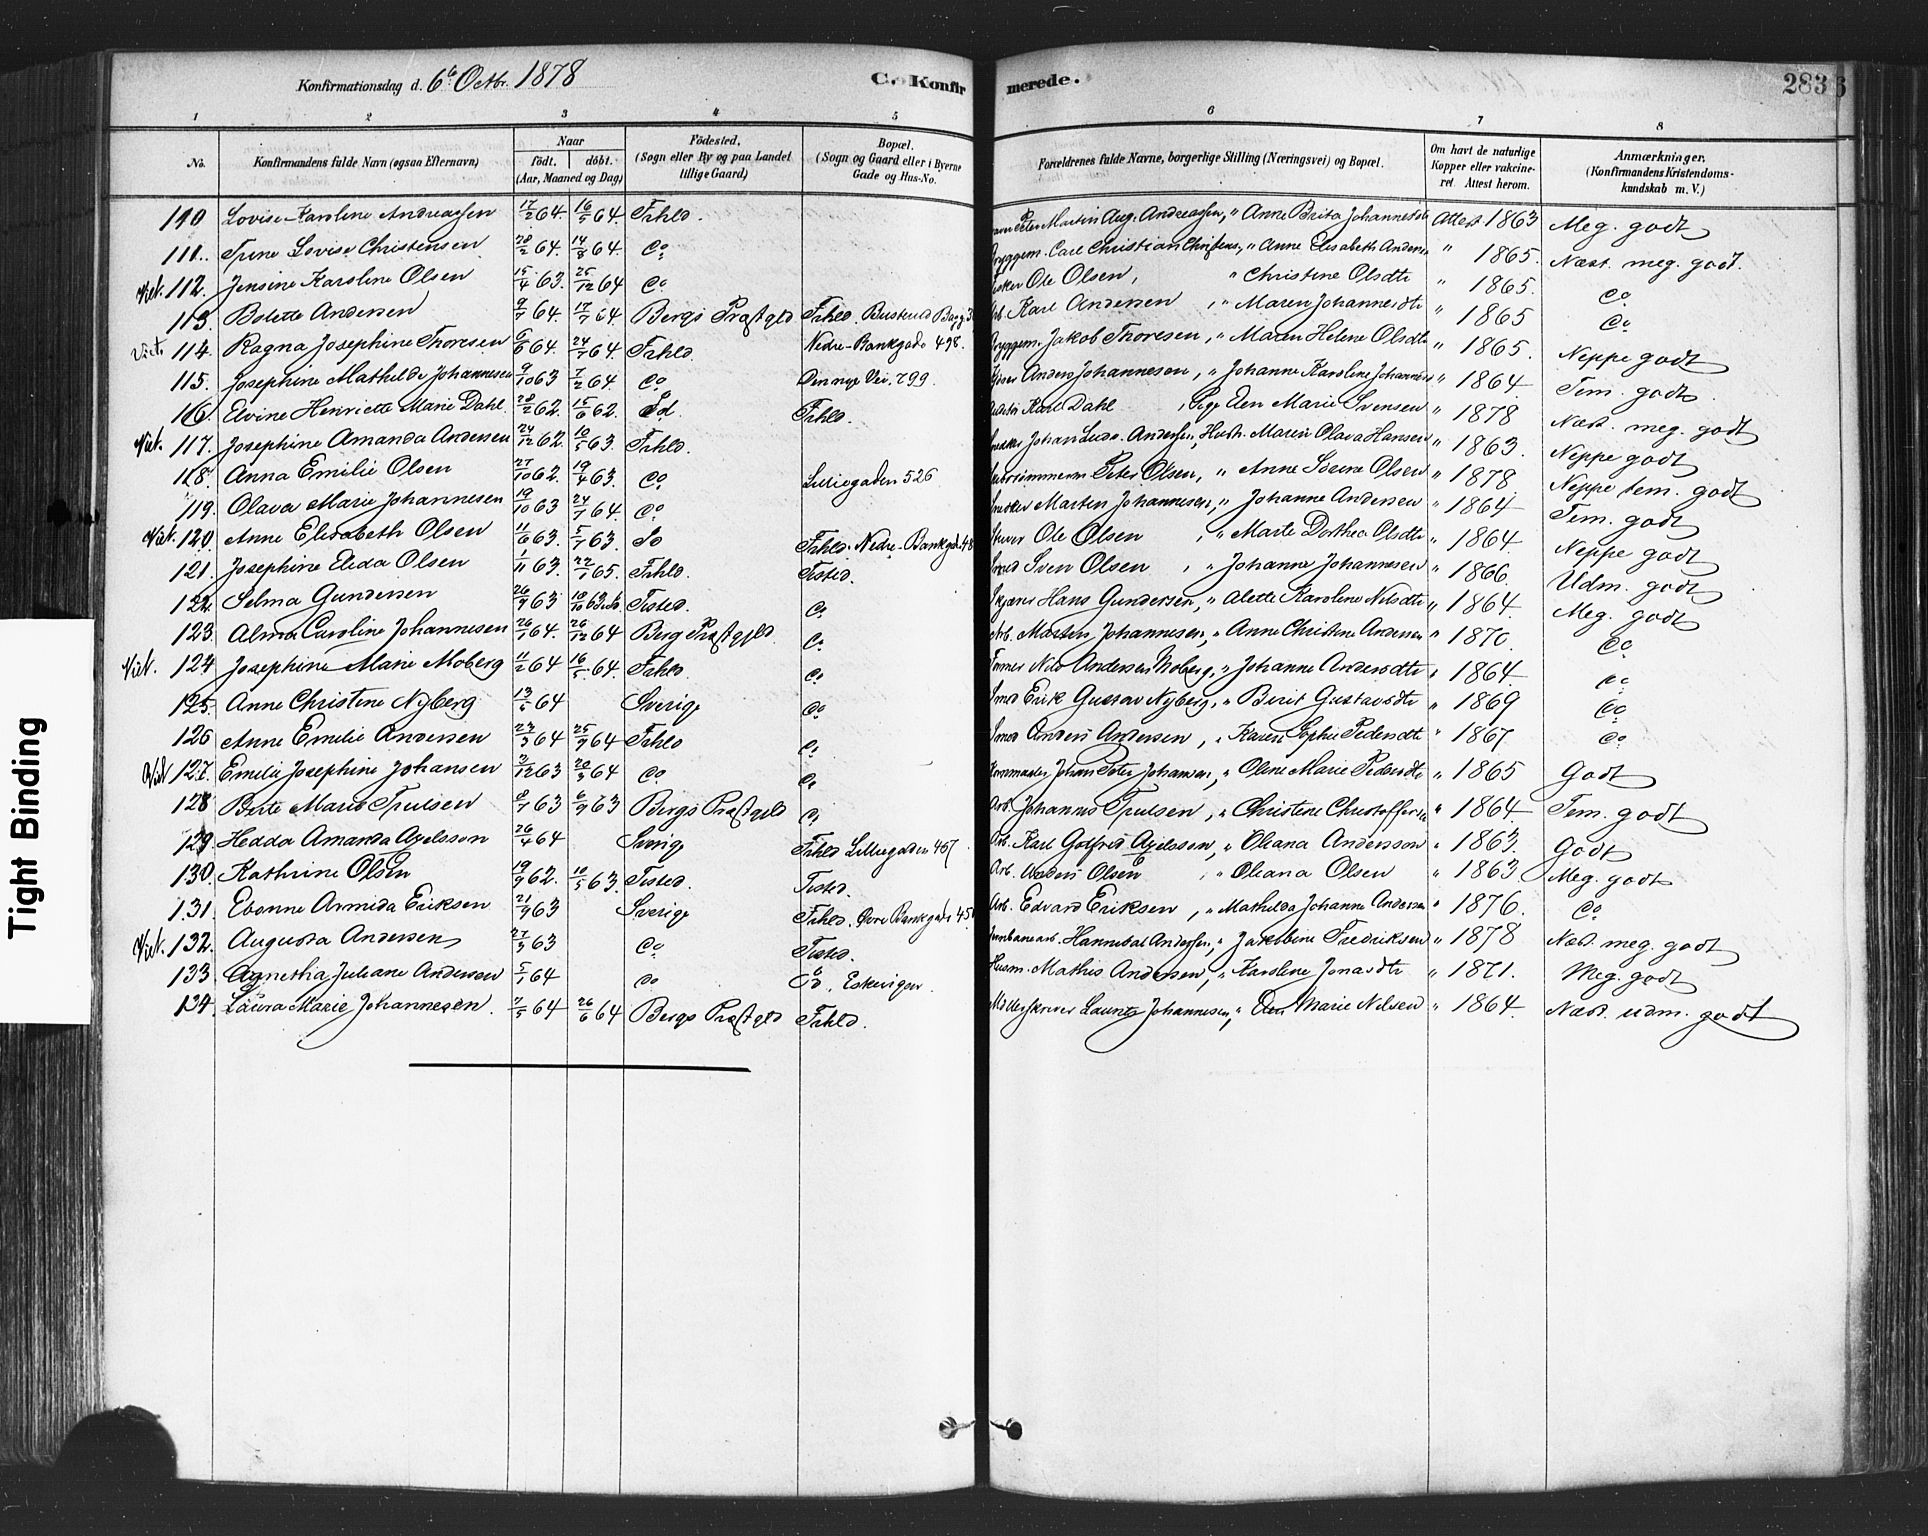 Konfirmationsdag d. 6te Octbr. 1878 C. Konfir merede. 283
1 2 3 4 5 6 7 8
No. Konfirmandens fulde Navn (ogsaa Efternavn) Naar født. døbt. (Aar, Maaned og Dag) Födested, (Sogn eller By og paa Landet tillige Gaard) Bopæl. (Sogn og Gaard eller i Byerne Gade og Hus-No. Forældrenes fulde Navne, borgerlige Stilling (Næringsvei) og Bopæl. Om havt de naturlige Kopper eller vakcineret. Attest herom. Anmærkninger. (Konfirmandens Kristendomskundskab m. V.)
110 Lovise Karoline Andreassen 17/2 64. 16/5 64. Frhld. Martin Aug. Andreassen, " Anne Brita Johannesdt Attest 1863 Meg. godt
111. Trine Lovise Christensen 28/2 64. 14/8 64. Do Bryggem. Carl Christian Christens, " Anne Elisabeth Andersen " 1865. Næst. meg. godt.
Viet. 112. Jensine Karoline Olsen 15/4 63. 25/12 64 Do Ole Olsen, " Christine Olsdtr " 1865. Do
113. Bolette Andersen 9/7 64. 17/7 64. Bergs Præstgld Frhld. Arb. Karl Andersen, " Maren Johannesdtr " 1865 Do
Viet. 114. Ragna Josephine Thoresen 6/6 64. 24/7 64. Frhld. Nedre-Bankgade 498. Bryggem. Jakob Thoresen, " Maren Helene Olsdtr " 1865. Neppe godt
115. Josephine Mathilde Johannesen 9/10 63 7/2 64. Do Den nye Vei. 799. Anders Johannesen, " Johanne Karoline Johannes " 1864 Tem. godt
116. Elvine Henriette Marie Dahl. 28/2 62. 15/6 62. Frhld. Karl Dahl, Pige Ellen Marie Svensen " 1878 Næst. meg. godt
Viet. 117. Josephine Amanda Andersen 24/12 62. 10/5 63. Frhld. Snedker Johan Ludv. Andersen, Hustr. Maren Olava Hansen " 1863. Neppe godt
118. Anna Emilie Olsen 27/10 62. 19/4 63. Do Lilliegaden 526 Peter Olsen, " Anne Serine Olsen " 1878 Neppe tem. godt
119. Olava Marie Johannesen 19/10 63 24/7 64. Do Martin Johannesen, " Johanne Andersen " 1864 Tem. godt
Viet. 120. Anne Elisabeth Olsen 11/6 63. 5/7 63. Do Frhld. Nedre-Bankgd. 48 Ole Olsen, " Marte Dorthea Olsdtr " 1864. Neppe godt
121. Josephine Elida Olsen 1/11 63. 22/1 65. Frhld. Tisted. Smed Sven Olsen, " Johanne Johannesen " 1866. Udm. godt
122. Selma Gundersen 26/9 63 10/10 63 Tisted. Do Hans Gundersen, " Alette Karoline Nilsdtr " 1864 Meg. godt
123. Alma Caroline Johannesen 26/1 64. 26/12 64 Berg Præstgjeld. Do Arb. Martin Johannesen, " Anne Christine Andersen " 1870. Do
Viet. 124 Josephine Marie Moberg 11/2 64 16/5 64. Frhld. Do Nils Andersen Moberg, " Johanne Andersdtr " 1864. Do
125. Anne Christine Nyberg 13/6 64 Sverige Do Smed Erik Gustav Nyberg, " Berit Gustavsdtr " 1869 Do
126 Anne Emilie Andersen 23/3 64 25/9 64 Frhld Do Smed Anders Andersen, " Karen Sophie Pedersdtr " 1867 Do
Viet 127. Emilie Josephine Johansen 3/12 63 20/3 64 Do Do Johan Peter Johansen, " Oline Marie Pedersdtr " 1865 Godt
128 Berte Marie Trulsen 8/7 63 6/9 63 Bergs Præstgeld Do Arb. Johannes Trulsen, " Christine Christoffersen " 1864 Tem. godt
129. Hedda Amanda Axelsson 26/4 64 Sverige Frhld Lilliegaden 467 Arb. Karl Gotfred Axelssen, " Oleana Andersson " 1863. Godt
130. Kathrine Olsen 19/9 62. 10/5 63. Tisted. Tisted. Arb. Anders Olsen, " Oleana Olsen " 1863 Meg. godt
131. Ebonne Armida Eriksen 21/9 63 Sverige Frhld. Øvre Bankgade 45 Arb. Edvard Eriksen, " Mathilda Johanne Andersen " 1876. Do
Viet. 132. Augusta Andersen 27/3 63 Do Tisted. Jernbanearb. Hannibal Andersen, " Jakobine Fredriksen " 1878 Næst. meg. godt
133 Agnethia Juliane Andersen 5/1 64 Do Do, Eskevigen. Husm. Mathis Andersen, " Karoline Jonasdtr " 1871. Meg. godt
134 Laura Marie Johannesen. 7/5 64 26/6 64 Bergs Præstgld Frhld. Laurits Johannesen, " Ellen Marie Nilsen " 1864 Næst. udm. godt
Tight Binding